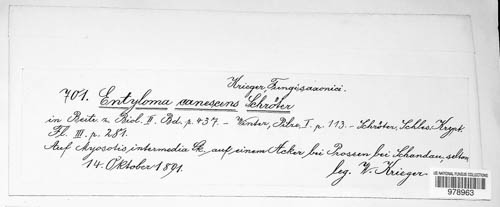 Krieger, Fungi saxonici.
701. Entyloma canescens Schröter
in Beitr. z. Biol. II. Bd. p. 437. – Winter, Pilze, I. p. 113. – Schröter, Schles. Krypt.
Fl. III. p. 281.
Auf Myosotis intermedia Lk., auf einem Acker bei Prossen bei Schandau, selten.
14. Oktober 1891.
leg. W. Krieger.
US NATIONAL FUNGUS COLLECTIONS
978963